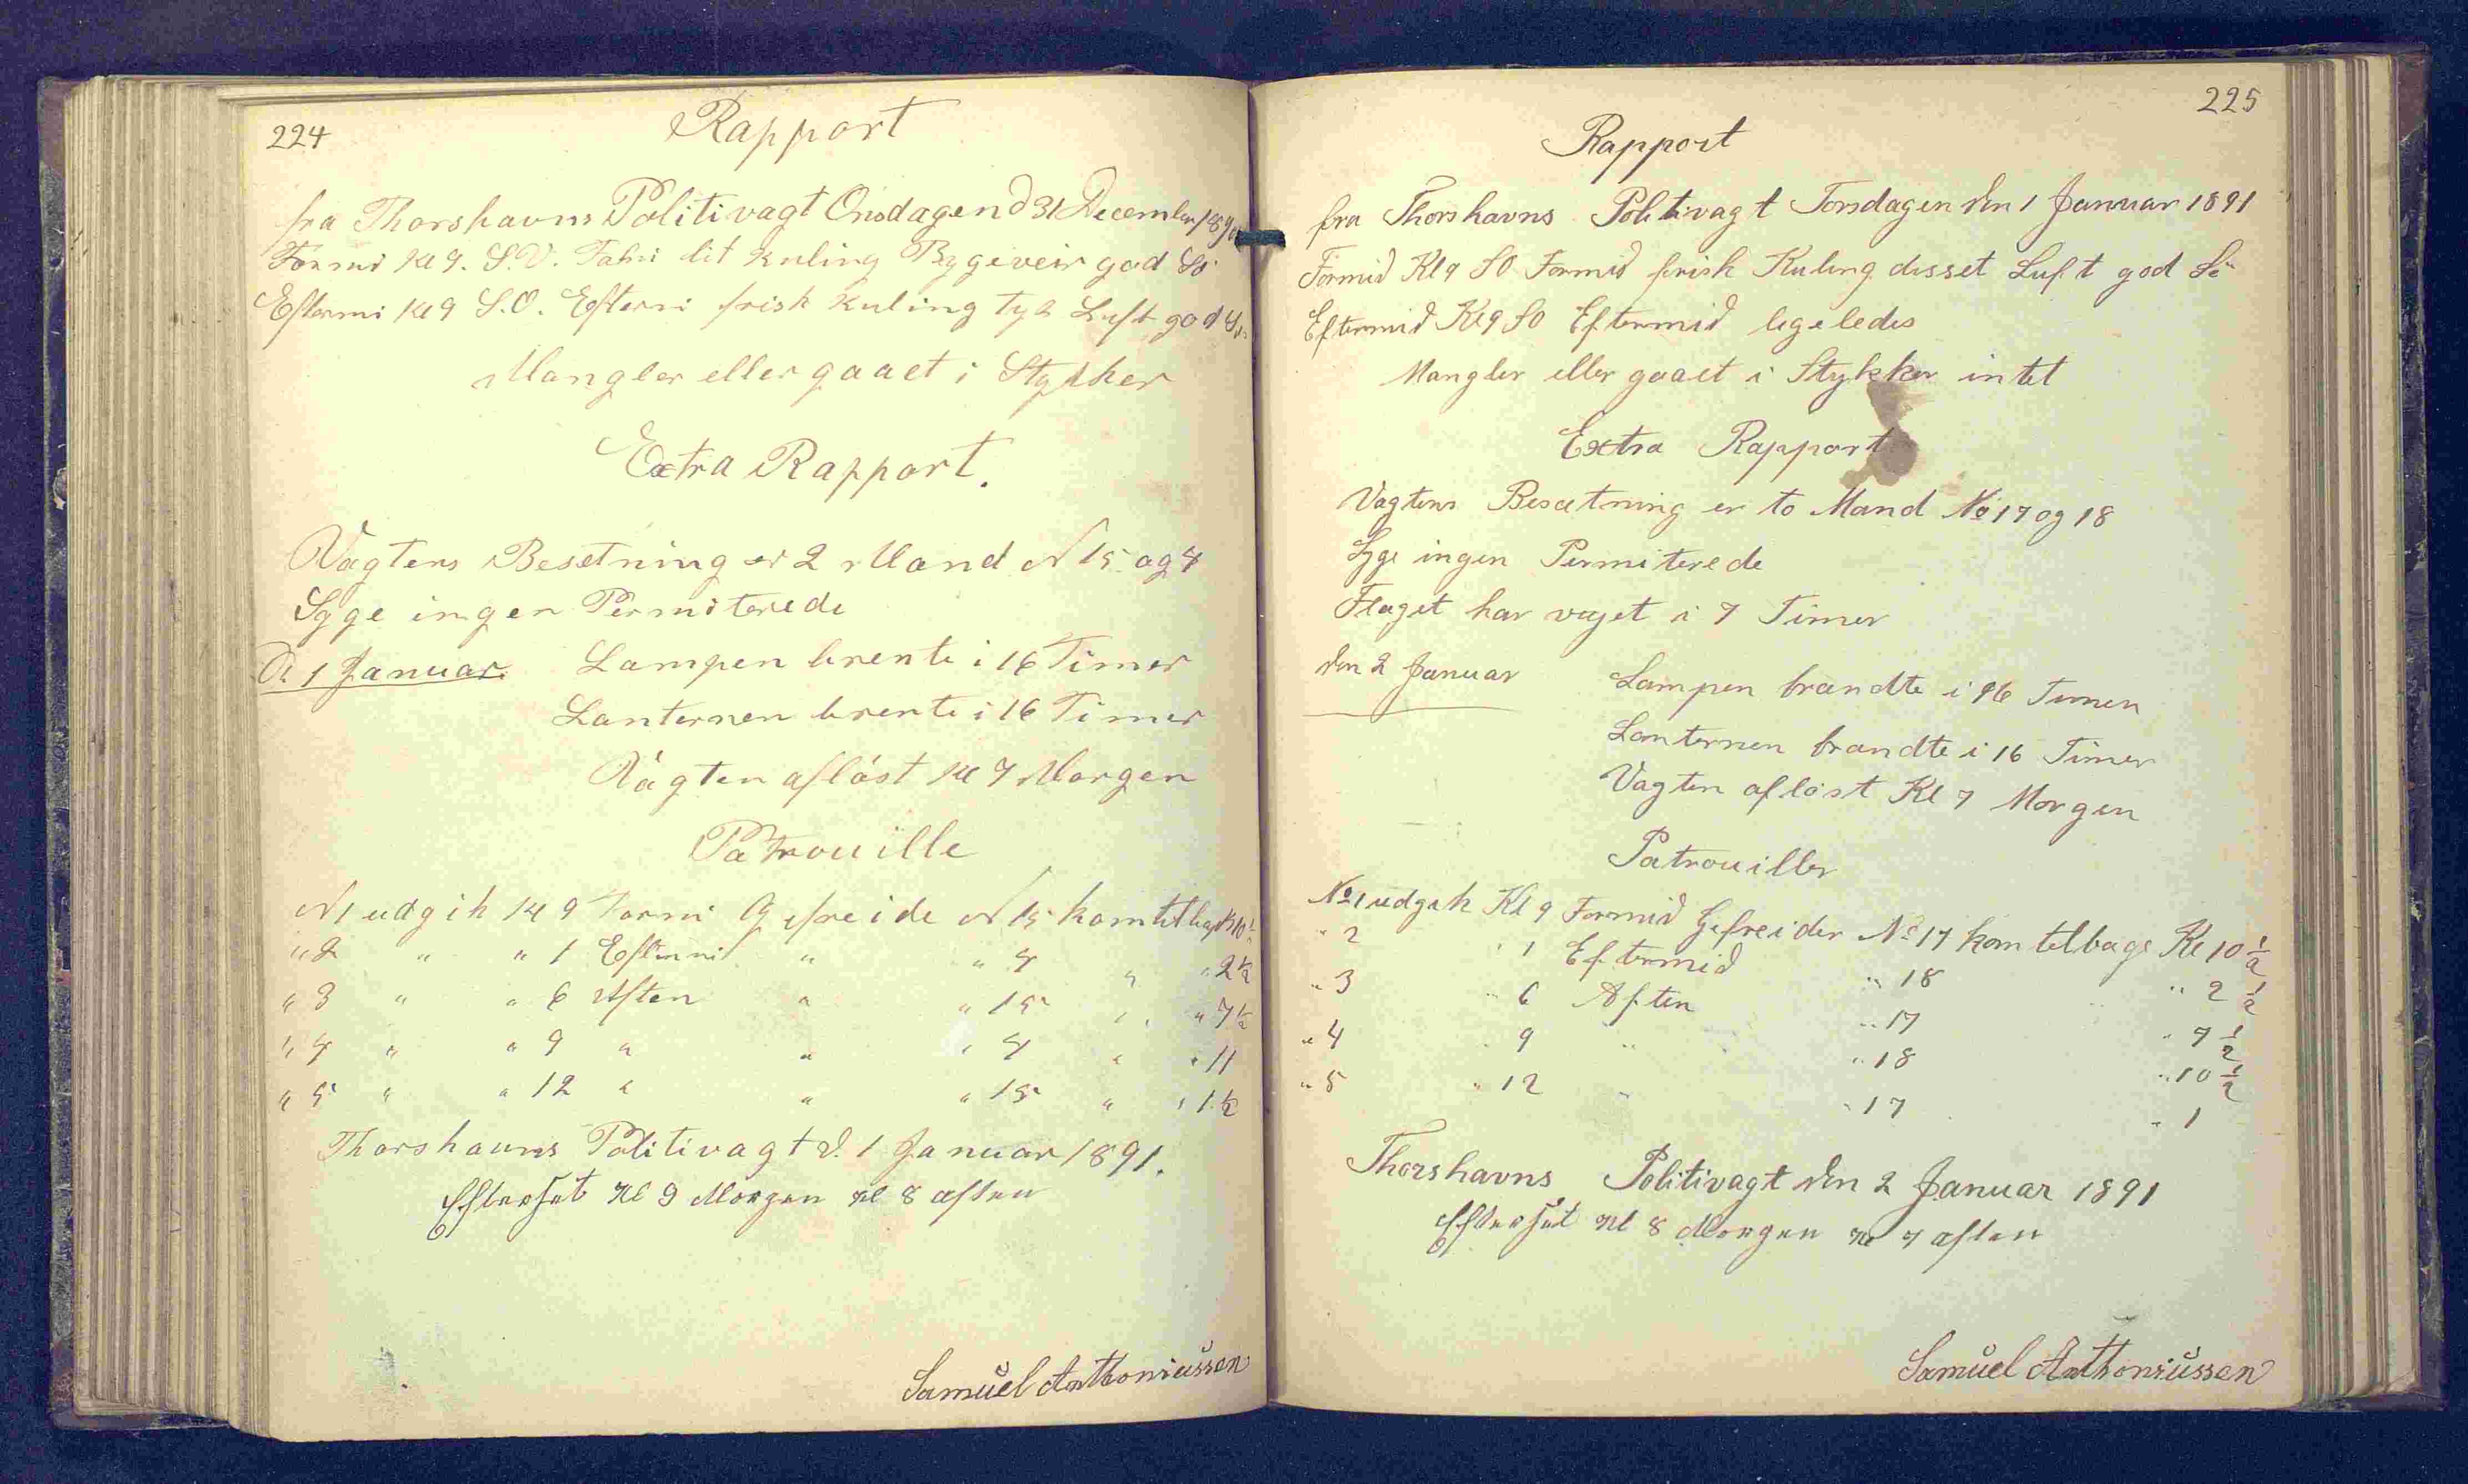 224
Rapport
fra Thorshavns Politivagt Onsdagen d 31 December 1890
Formd Kl 9. S.V. Fahri lit Kuling Bygeveir god Sö
Eftermi Kl 9 S.O. Eftermi frisk Kuling tyk Luft god Sö
Mangler eller gaaet i Stykker
Extra Rapport.
Vagtens Besetning er 2 Mand N 15 og 4
Syge ingen Permiterede
D 1 Januar. Lampen brente i 16 Timer
Lanternen brente i 16 Timer
Vagten aflöst Kl 7 Morgen
Patrouille
N 1 udgik Kl 9 Formi Gefreide N 15 kom tilbage Kl 10 1/2
" 2 " " 1 Eftermi " " 4 " " 2 1/2
" 3 " " 6 Aften " " 15 " " 7 1/2
" 4 " " 9 " " " 4 " " 11
" 5 " " 12 " " " 15 " " 1 1/2
Thorshavns Politivagt d. 1 Januar 1891.
Efterset Kl 9 Morgen Kl 8 aften
Samuel Anthoniussen
225
Rapport
fra Thorshavns Politivagt Torsdagen den 1 Januar 1891
Formid Kl 9 SO Formid frisk Kuling disset Luft god Sö
Eftermid Kl 9 SO Eftermid ligeledes
Mangler eller gaaet i Stykker intet
Extra Rapport
Vagtens Besætning er to Mand No 17 og 18
Syge ingen Permiterede
Flaget har vajet i 7 Timer
den 2 Januar Lampen brændte i 16 Timer
Lanternen brændte i 16 Timer
Vagten aflöst Kl 7 Morgen
Patrouiller
No 1 udgik Kl 9 Formid Gefreider No 17 kom tilbage Kl 10 1/2
" 2 " 1 Eftermid " 18 " 2 1/2
" 3 " 6 Aften " 17 " 7 1/2
" 4 " 9 " " 18 " 10 1/2
" 5 " 12 " " 17 " 1
Thorshavns Politivagt den 2 Januar 1891
Efterset Kl 8 Morgen Kl 7 aften
Samuel Anthoniussen